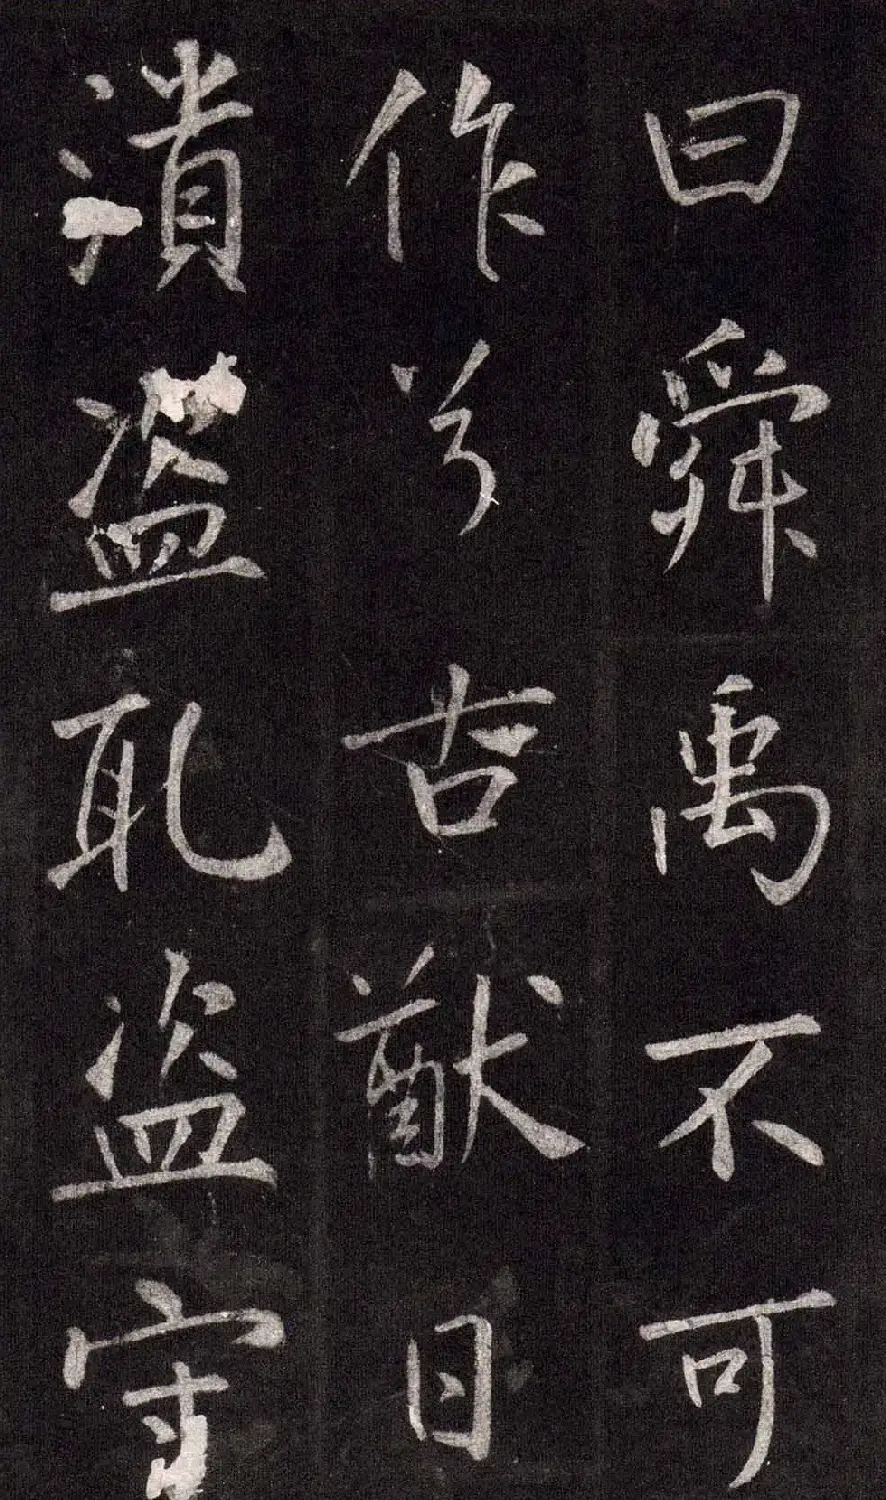 曰舜禹不可
作兮古猷日
潰盜耴盜守